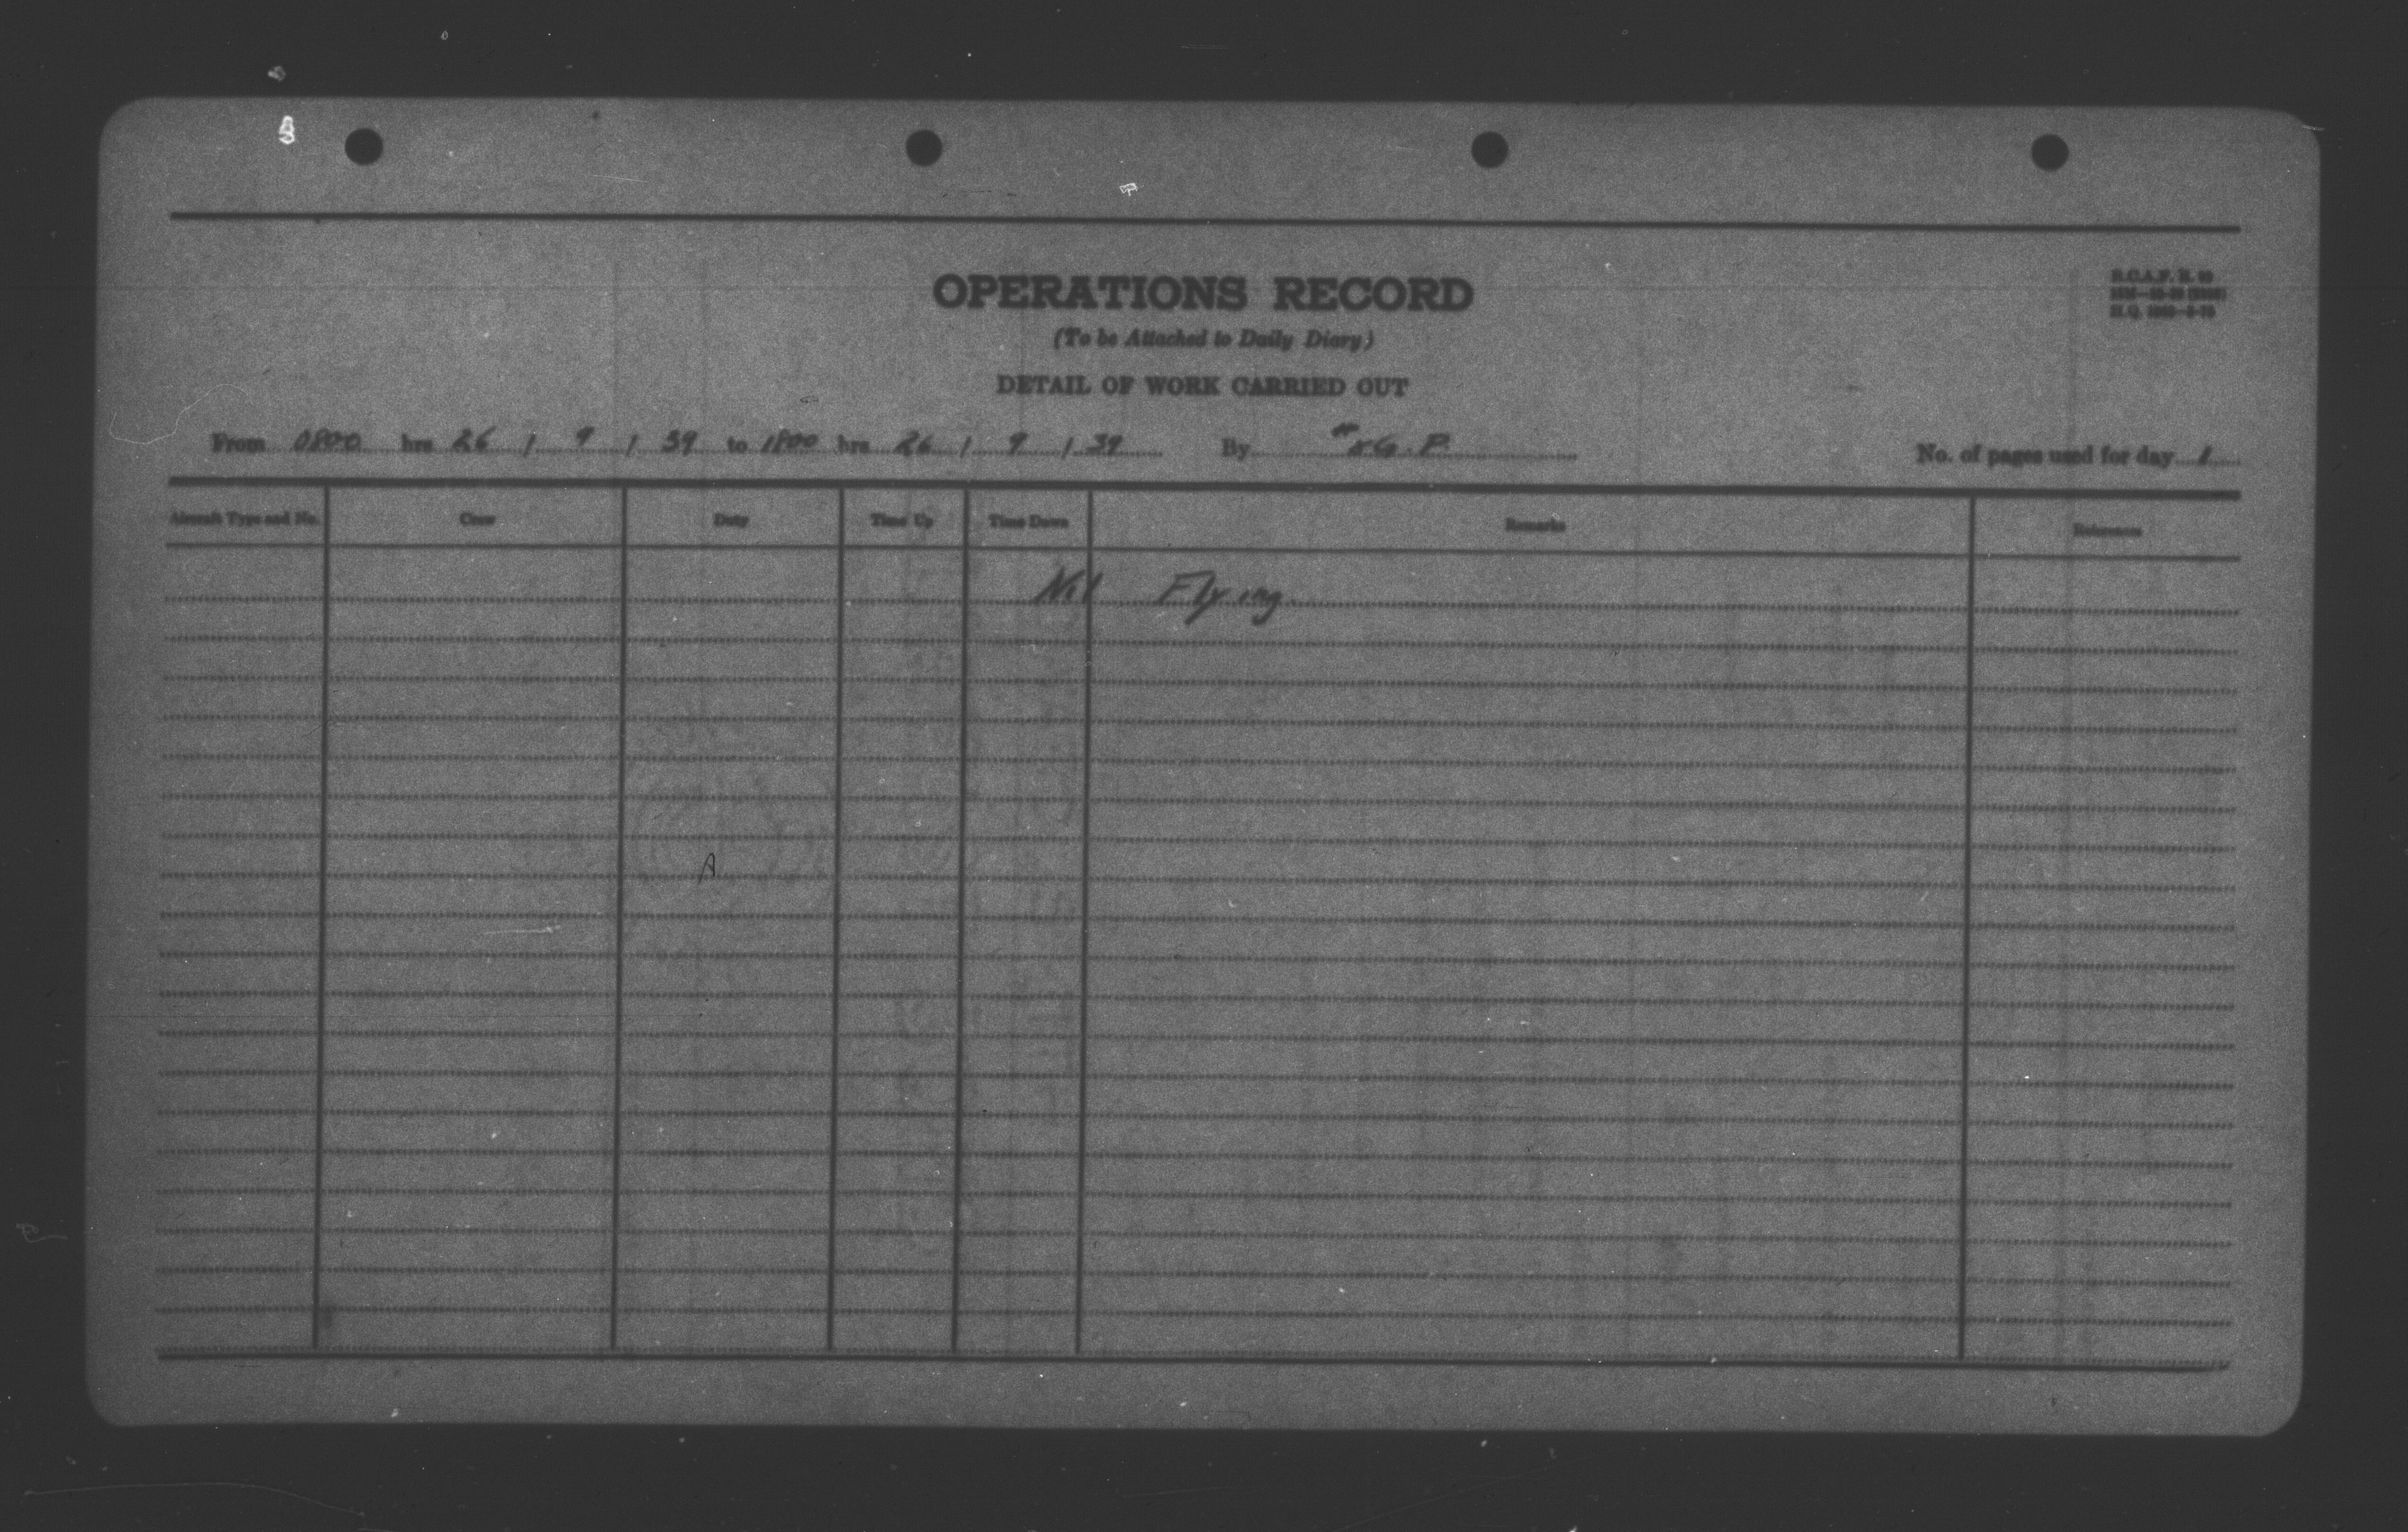 OPERATIONS RECORD
(To be Attached to Daily Diary)
DETAIL OF WORK CARRIED OUT
R.C.A.F. R.
H.Q.
From 0800 hrs 26 / 9 / 39 to 1800 hrs 26 / 9 / 39 By G.P. No. of pages used for day 1
Aircraft Type and No. Crew Duty Time Up Time Down Remarks References
Nil Flying